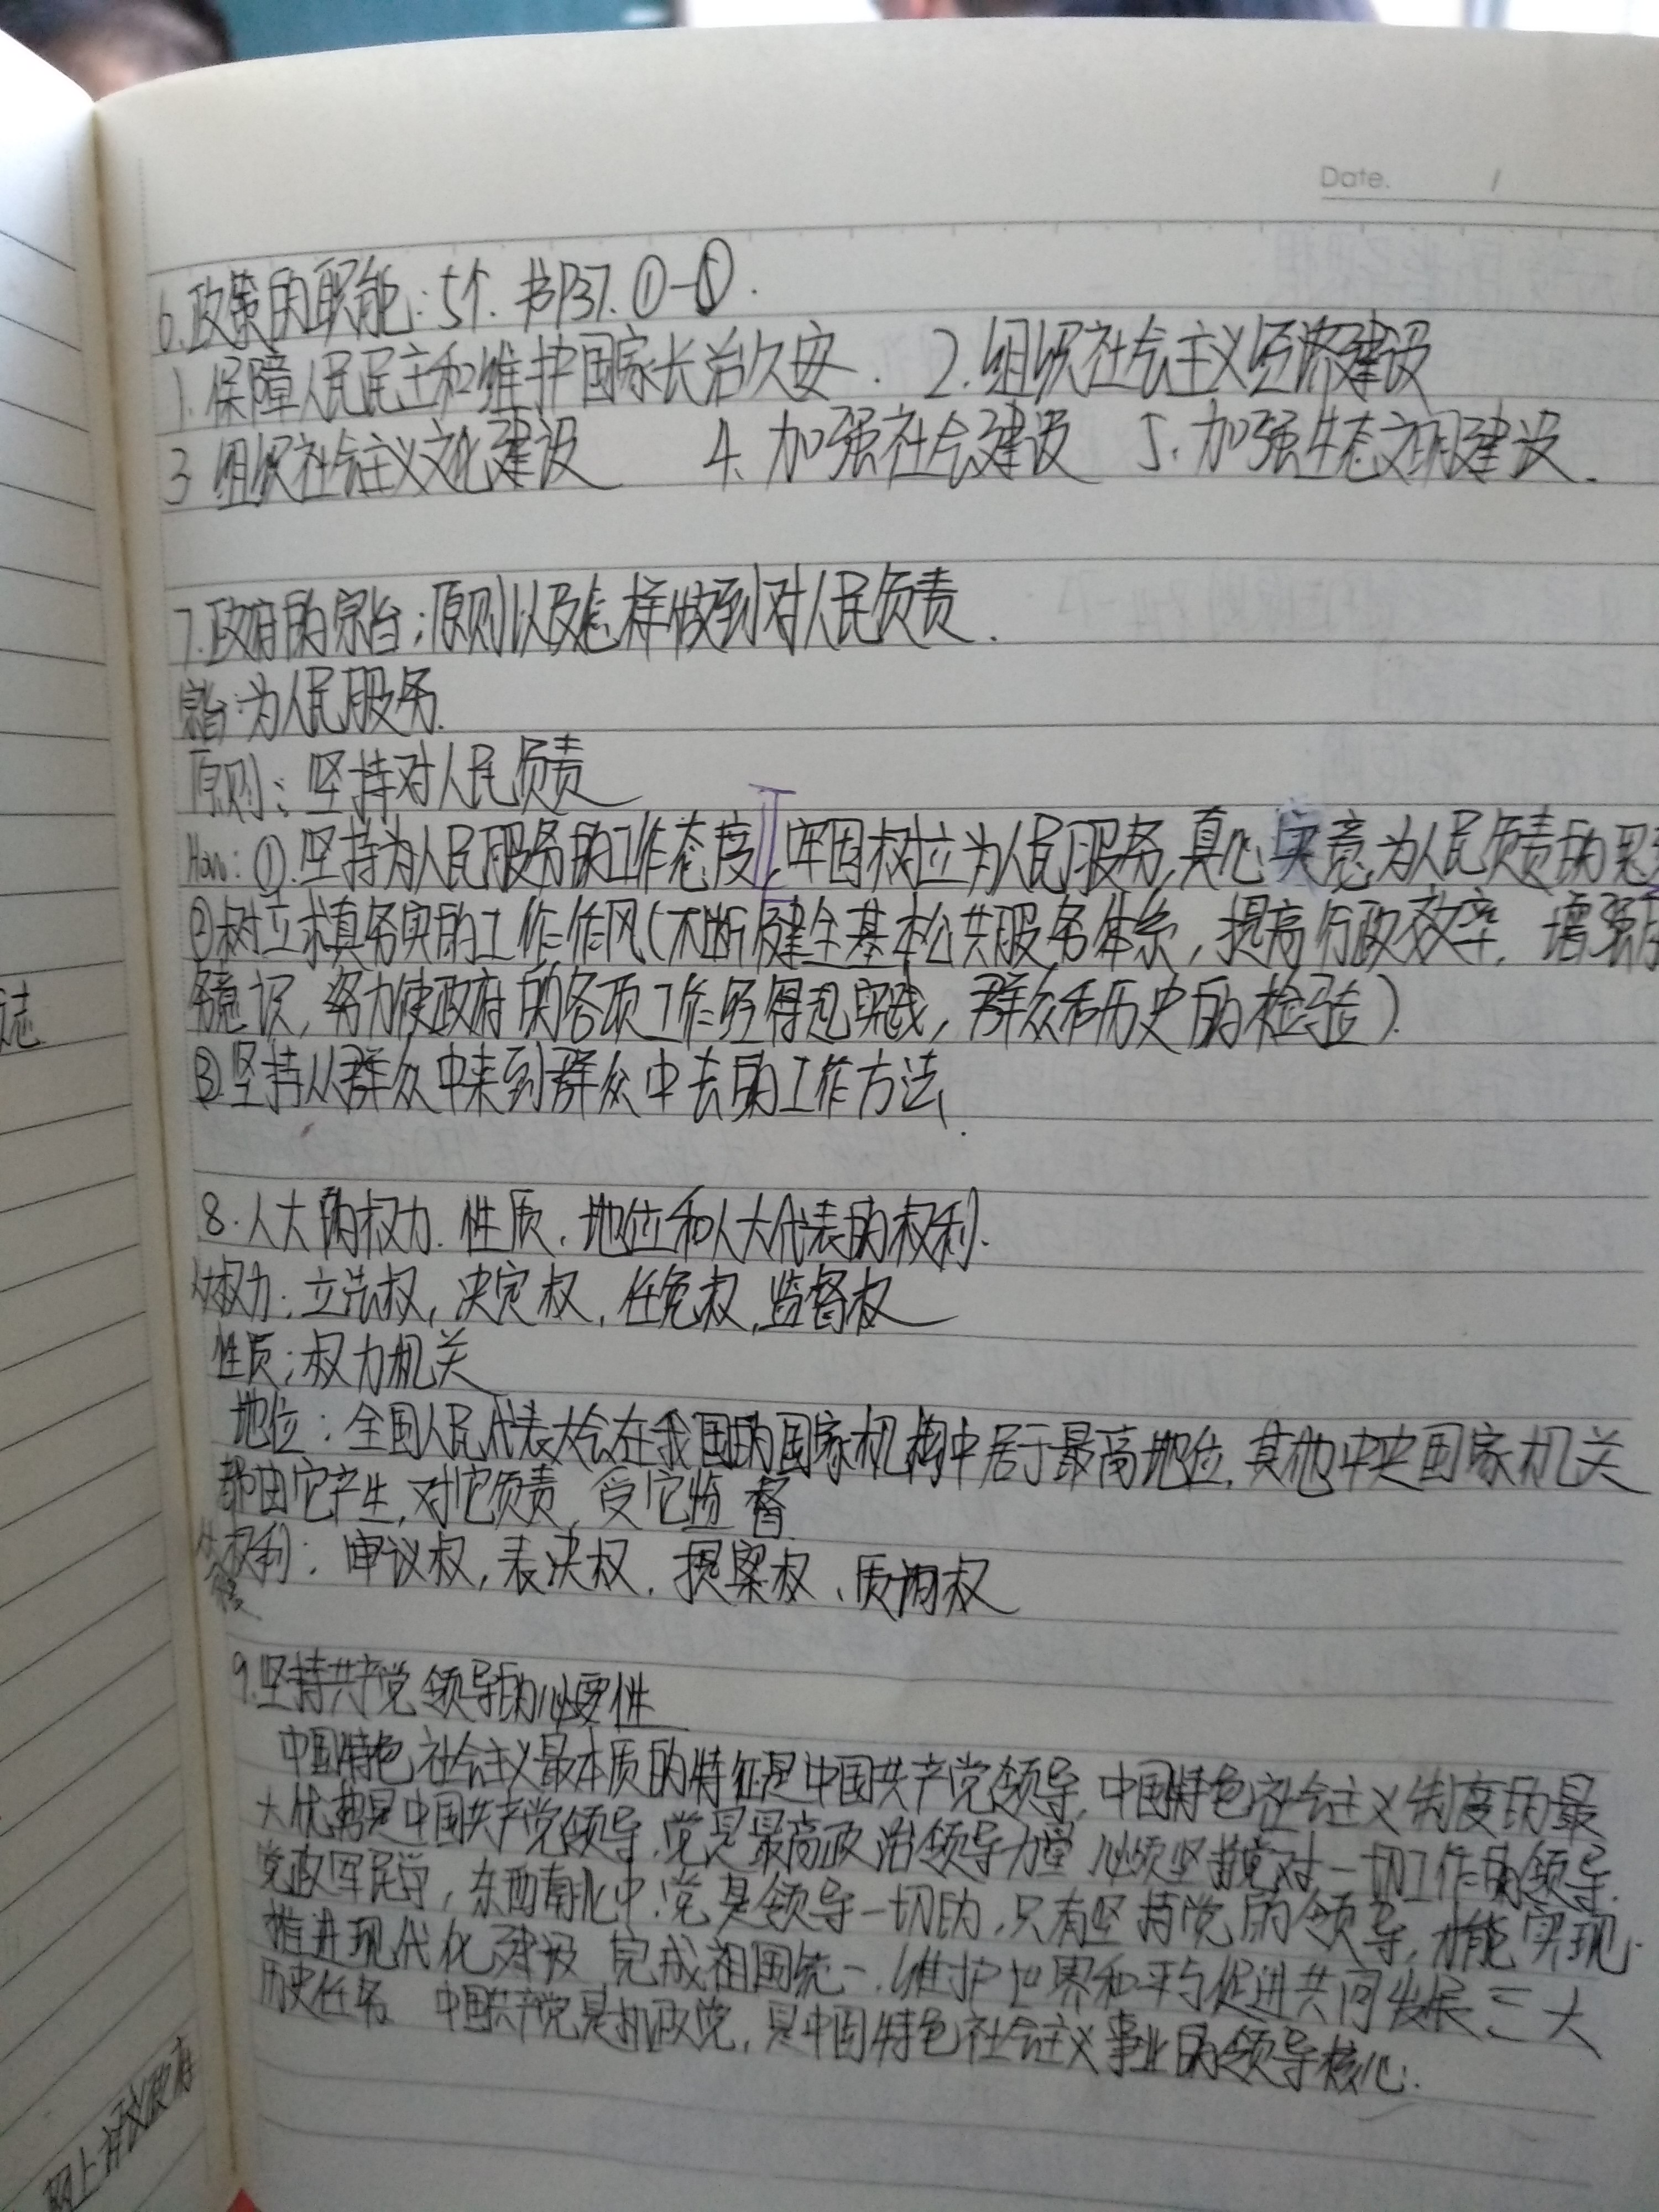 Date. /
6.政策的职能:5个.书P37.①-⑤.
1.保障人民民主和维护国家长治久安. 2.组织社会主义经济建设
3 组织社会主义文化建设 4.加强社会建设 5.加强生态文明建设.
7.政府的宗旨;原则以及怎样做到对人民负责.
宗旨:为人民服务.
原则:坚持对人民负责
How:①.坚持为人民服务的工作态度,牢固树立为人民服务,真心实意为人民负责的思
②树立求真务实的工作作风(不断健全基本公共服务体系,提高行政效率,增强服
务意识,努力使政府的各项工作经得起实践,群众和历史的检验).
③坚持从群众中来到群众中去的工作方法.
8.人大的权力.性质.地位和人大代表的权利.
权力:立法权,决定权,任免权,监督权
性质:权力机关
地位:全国人民代表大会在我国的国家机构中居于最高地位,其他中央国家机关
都由它产生,对它负责,受它监督
权利:审议权,表决权.提案权、质询权
9.坚持共产党领导的必要性
中国特色社会主义最本质的特征是中国共产党领导,中国特色社会主义制度的最
大优势是中国共产党领导,党是最高政治领导力量 必须坚持党对一切工作的领导.
党政军民学,东西南北中.党是领导一切的,只有坚持党的领导,才能实现
推进现代化建设 完成祖国统一.维护世界和平与促进共同发展三大
历史任务 中国共产党是执政党,是中国特色社会主义事业的领导核心.
志
网上评议政府